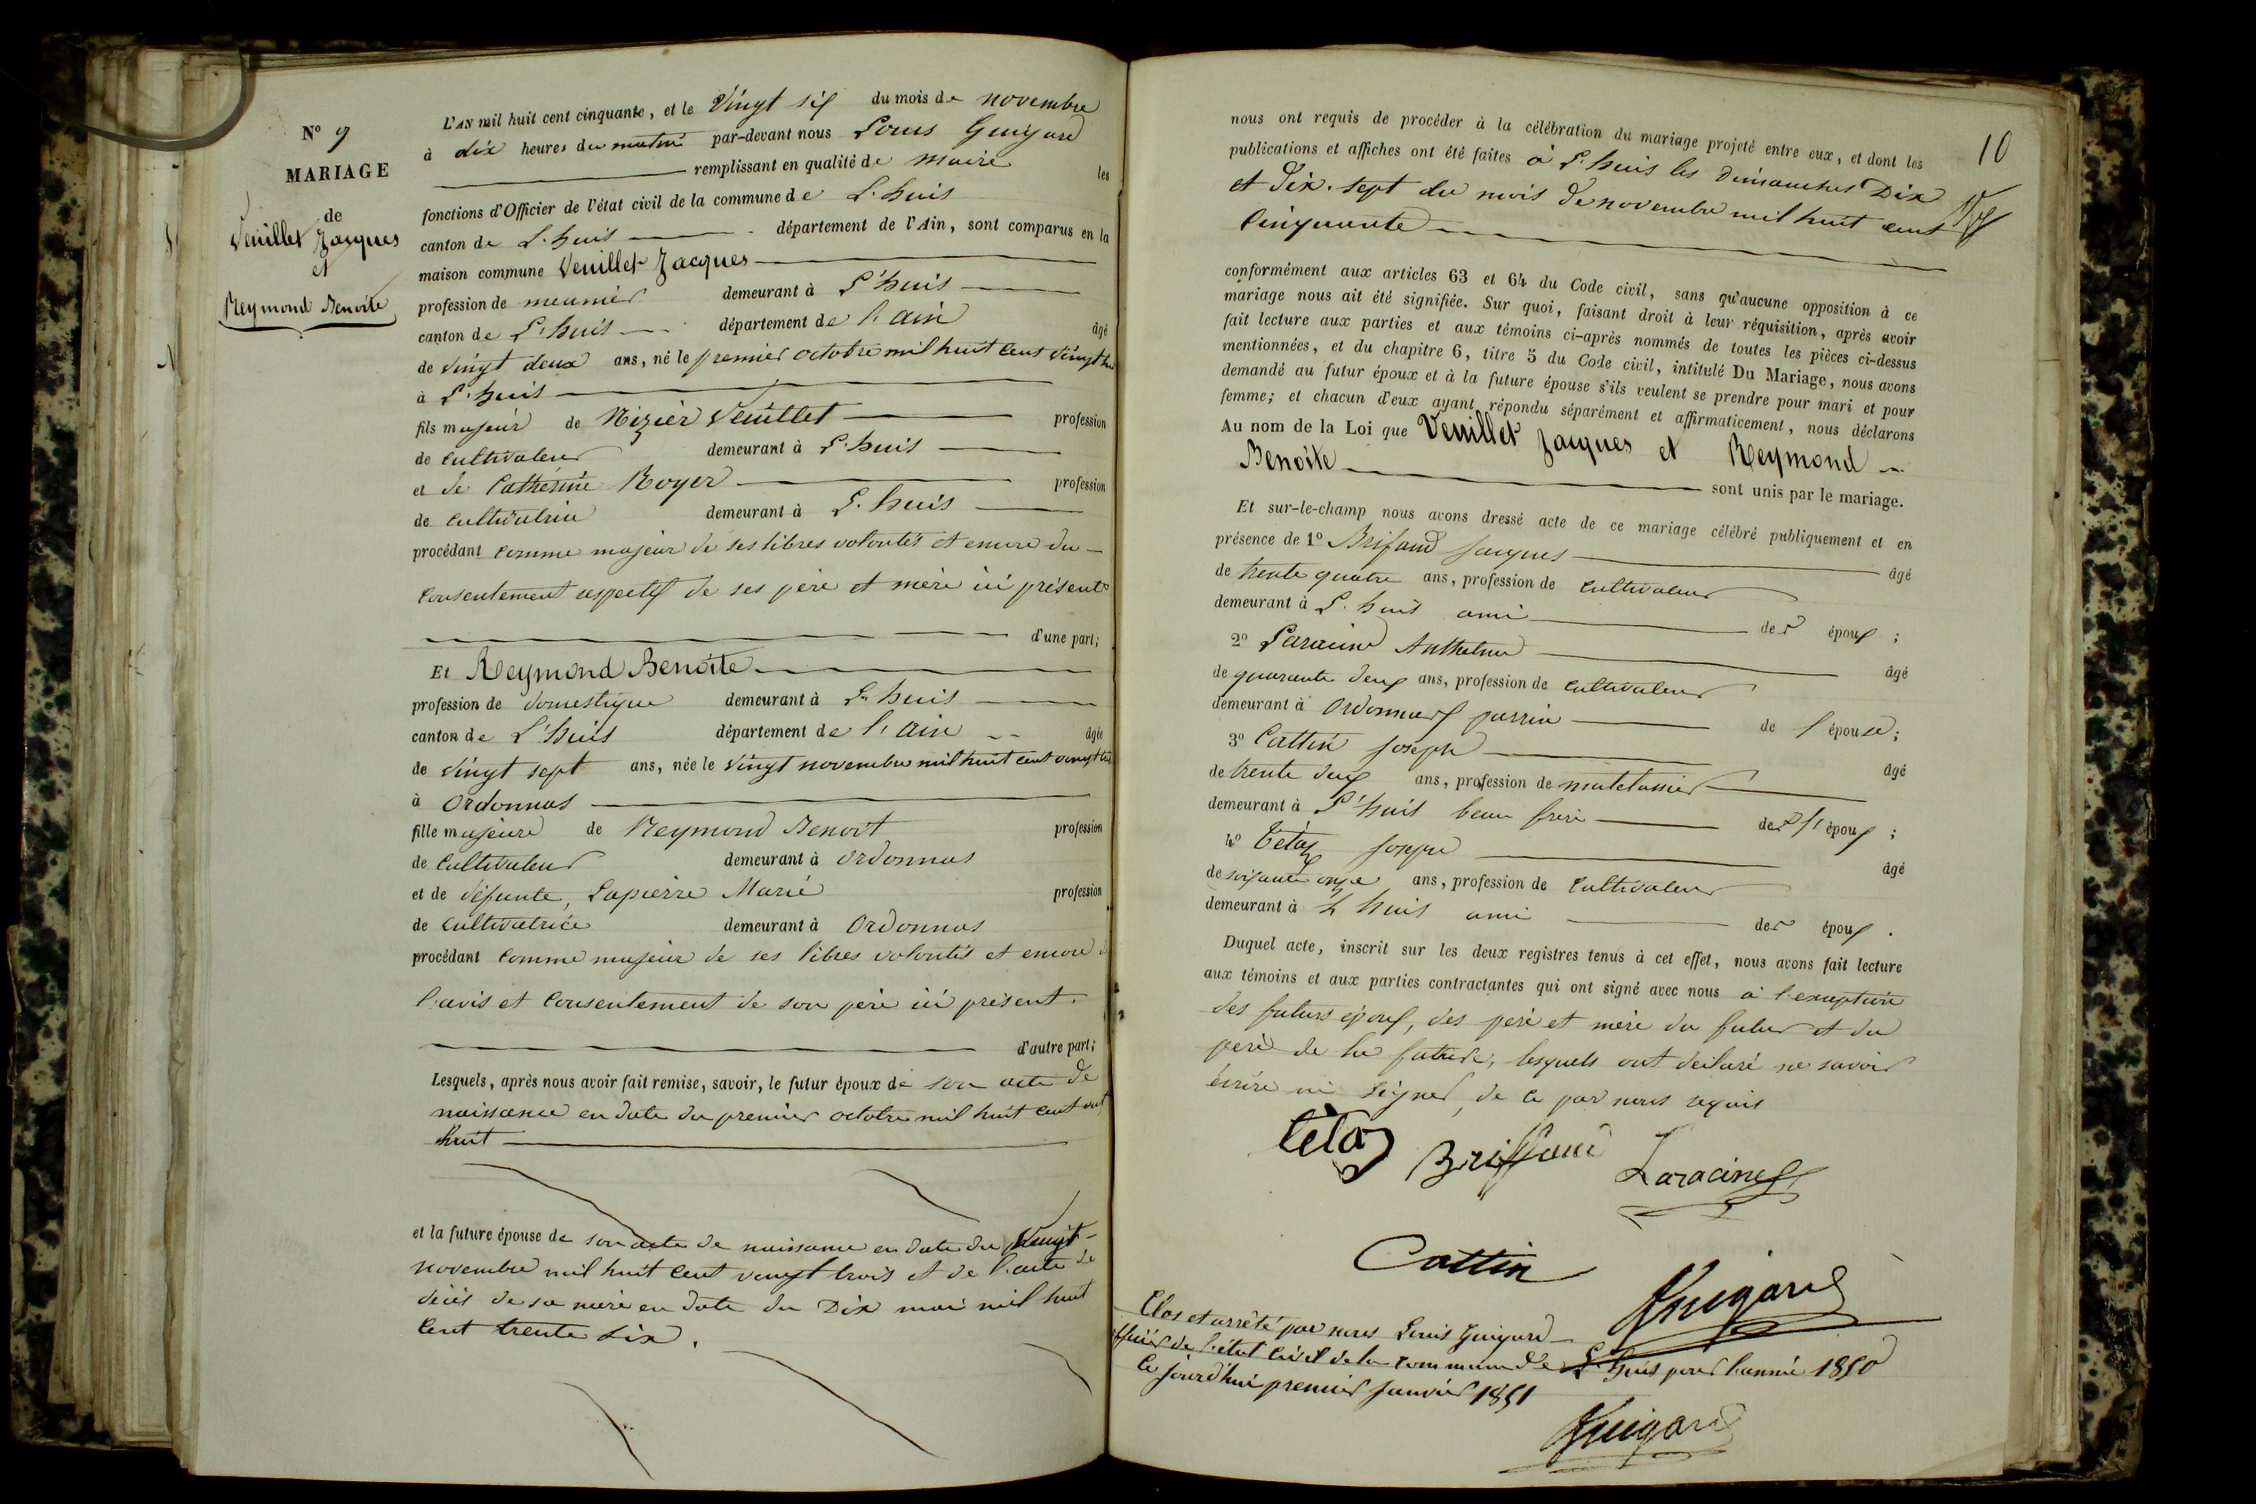 N° 9
MARIAGE
de
Veuillet Jacques
et
Reymond Benoite
L'AN mil huit cent cinquante, et le vingt six du mois de novembre
à dix heures du matin par-devant nous Louis Guigard
remplissant en qualité de maire les
fonctions d'Officier de l'état civil de la commune de L'huis
canton de L'huis département de l'Ain, sont comparus en la
maison commune Veuillet Jacques
profession de meunier demeurant à L'huis
canton de L'huis département de l'ain âgé
de vingt deux ans, né le premier octobre mil huit cent vingt huit
à L'huis
fils majeur de Nizier Veuillet profession
de cultivateur demeurant à L'huis
et de Catherine Royer profession
de cultivatrice demeurant à L'huis
procédant comme majeur de ses libres volontés et encore du
consentement respectif de ses père et mère ici présents
d'une part;
Et Reymond Benoite
profession de domestique demeurant à L'huis
canton de L'huis département de l'ain âgée
de vingt sept ans, née le vingt novembre mil huit cent vingt trois
à Ordonnas
fille majeure de Reymond Benoit profession
de cultivateur demeurant à Ordonnas
et de défunte, Lapierre Marie profession
de cultivatrice demeurant à Ordonnas
procédant comme majeur de ses libres volontés et encore de
l'avis et consentement de son père ici présent.
d'autre part;
Lesquels, après nous avoir fait remise, savoir, le futur époux de son acte de
naissance en date du premier octobre mil huit cent vingt
huit
et la future épouse de son acte de naissance en date du vingt
novembre mil huit cent vingt trois et de l'acte de
décès de sa mère en date du Dix mai mil huit
cent trente six.
10
nous ont requis de procéder à la célébration du mariage projeté entre eux, et dont les
publications et affiches ont été faites à L'huis les dimanches Dix
et Dix-sept du mois de novembre mil huit cent
cinquante
conformément aux articles 63 et 64 du Code civil, sans qu'aucune opposition à ce
mariage nous ait été signifiée. Sur quoi, faisant droit à leur réquisition, après avoir
fait lecture aux parties et aux témoins ci-après nommés de toutes les pièces ci-dessus
mentionnées, et du chapitre 6, titre 5 du Code civil, intitulé Du Mariage, nous avons
demandé au futur époux et à la future épouse s'ils veulent se prendre pour mari et pour
femme; et chacun d'eux ayant répondu séparément et affirmativement, nous déclarons
Au nom de la Loi que Veuillet Jacques et Reymond
Benoite
sont unis par le mariage.
Et sur-le-champ nous avons dressé acte de ce mariage célébré publiquement et en
présence de 1° Brifaud Jacques âgé
de trente quatre ans, profession de cultivateur
demeurant à L'huis ami des époux;
2° Laracine Anthelme âgé
de quarante deux ans, profession de cultivateur
demeurant à Ordonnas parrin de l'épouse;
3° Cattin Joseph âgé
de trente deux ans, profession de matelassier
demeurant à L'huis beau frère époux;
4° Tétaz Joseph âgé
de soixante onze ans, profession de cultivateur
demeurant à L'huis ami des époux.
Duquel acte, inscrit sur les deux registres tenus à cet effet, nous avons fait lecture
aux témoins et aux parties contractantes qui ont signé avec nous à l'exception
des futurs époux, des père et mère du futur et du
père de la future, lesquels ont déclaré ne savoir
écrire ni signer, de ce par nous requis
tétaz Briffaud Laracine
Cattin Guigard
Clos et arrêté par nous Louis Guigard
officier de l'état civil de la commune de L'huis pour l'année 1850
ce jourd'hui premier janvier 1851
Guigard